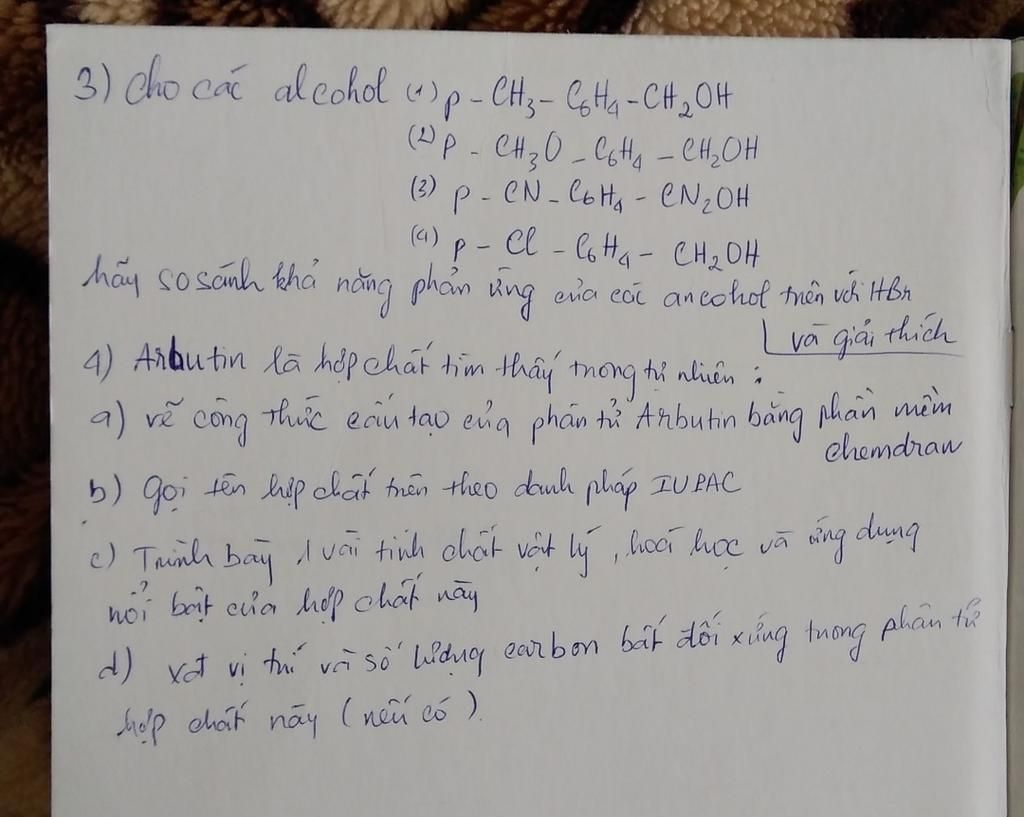 3) Cho các alcohol (1) p - CH₃ - C₆H₄ - CH₂OH
(2) p - CH₃O - C₆H₄ - CH₂OH
(3) p - CN - C₆H₄ - CN₂OH
(4) p - Cl - C₆H₄ - CH₂OH
hãy so sánh khả năng phản ứng của các ancohol trên với HBr
và giải thích
4) Arbutin là hợp chất tìm thấy trong tự nhiên :
a) vẽ công thức cấu tạo của phân tử Arbutin bằng phần mềm
chemdraw
b) gọi tên hợp chất trên theo danh pháp IUPAC
c) Trình bày 1 vài tính chất vật lý, hoá học và ứng dụng
nổi bật của hợp chất này
d) xđ vị trí và số lượng carbon bất đối xứng trong phân tử
hợp chất này (nếu có).